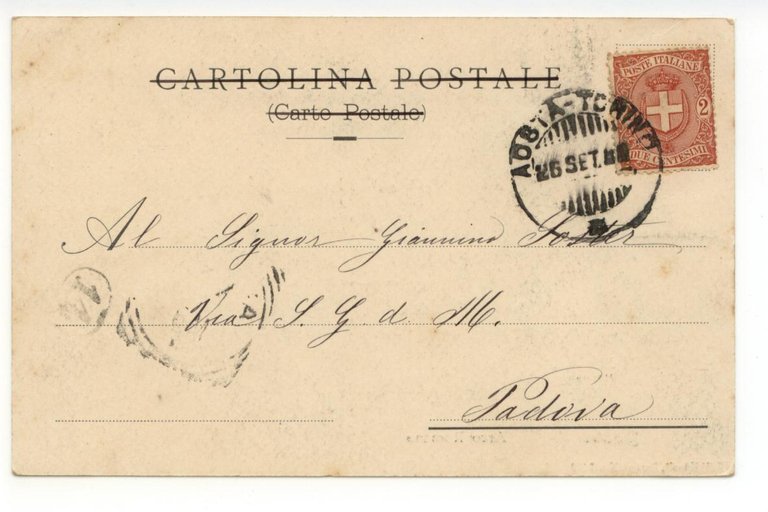 CARTOLINA POSTALE
(Carte Postale)
POSTE ITALIANE
2
DUE CENTESIMI
AOSTA-TORINO
26 SET.
Al Signor Giannino Soster
Via S. G. d. M.
Padova